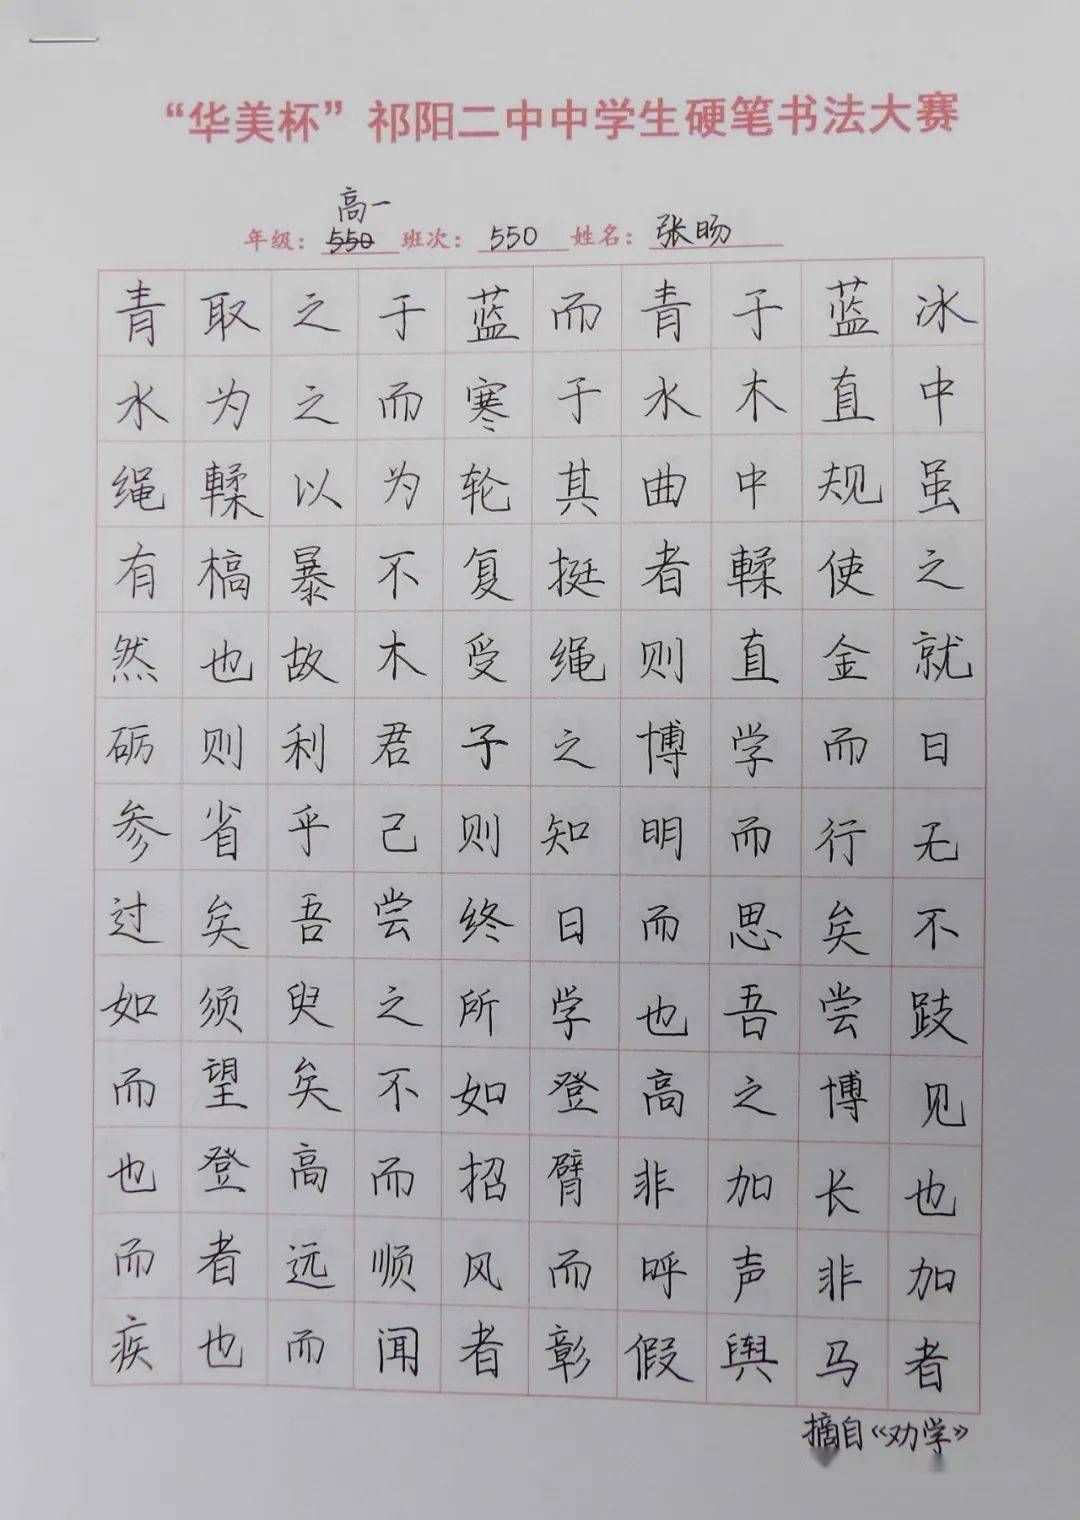 “华美杯”祁阳二中中学生硬笔书法大赛
高一
年级：550 班次：550 姓名：张旸
青取之于蓝而青于蓝冰
水为之而寒于水木直中
绳輮以为轮其曲中规虽
有槁暴不复挺者輮使之
然也故木受绳则直金就
砺则利君子之博学而日
参省乎己则知明而行无
过矣吾尝终日而思矣不
如须臾之所学也吾尝跂
而望矣不如登高之博见
也登高而招臂非加长也
而者远顺风而呼声非加
疾也而闻者彰假舆马者
摘自《劝学》